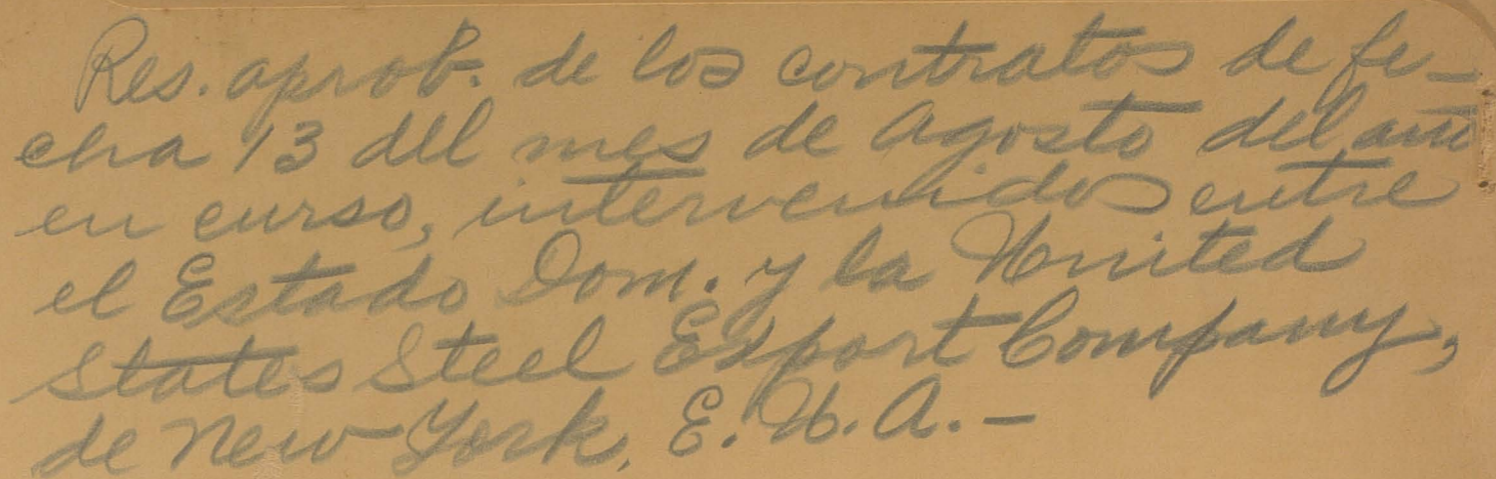 Res. aprob. de los contratos de fe-
cha 13 del mes de Agosto del año
en curso, intervenidos entre
el Estado Dom. y la United
States Steel Export Company,
de New York, E.U.A.-